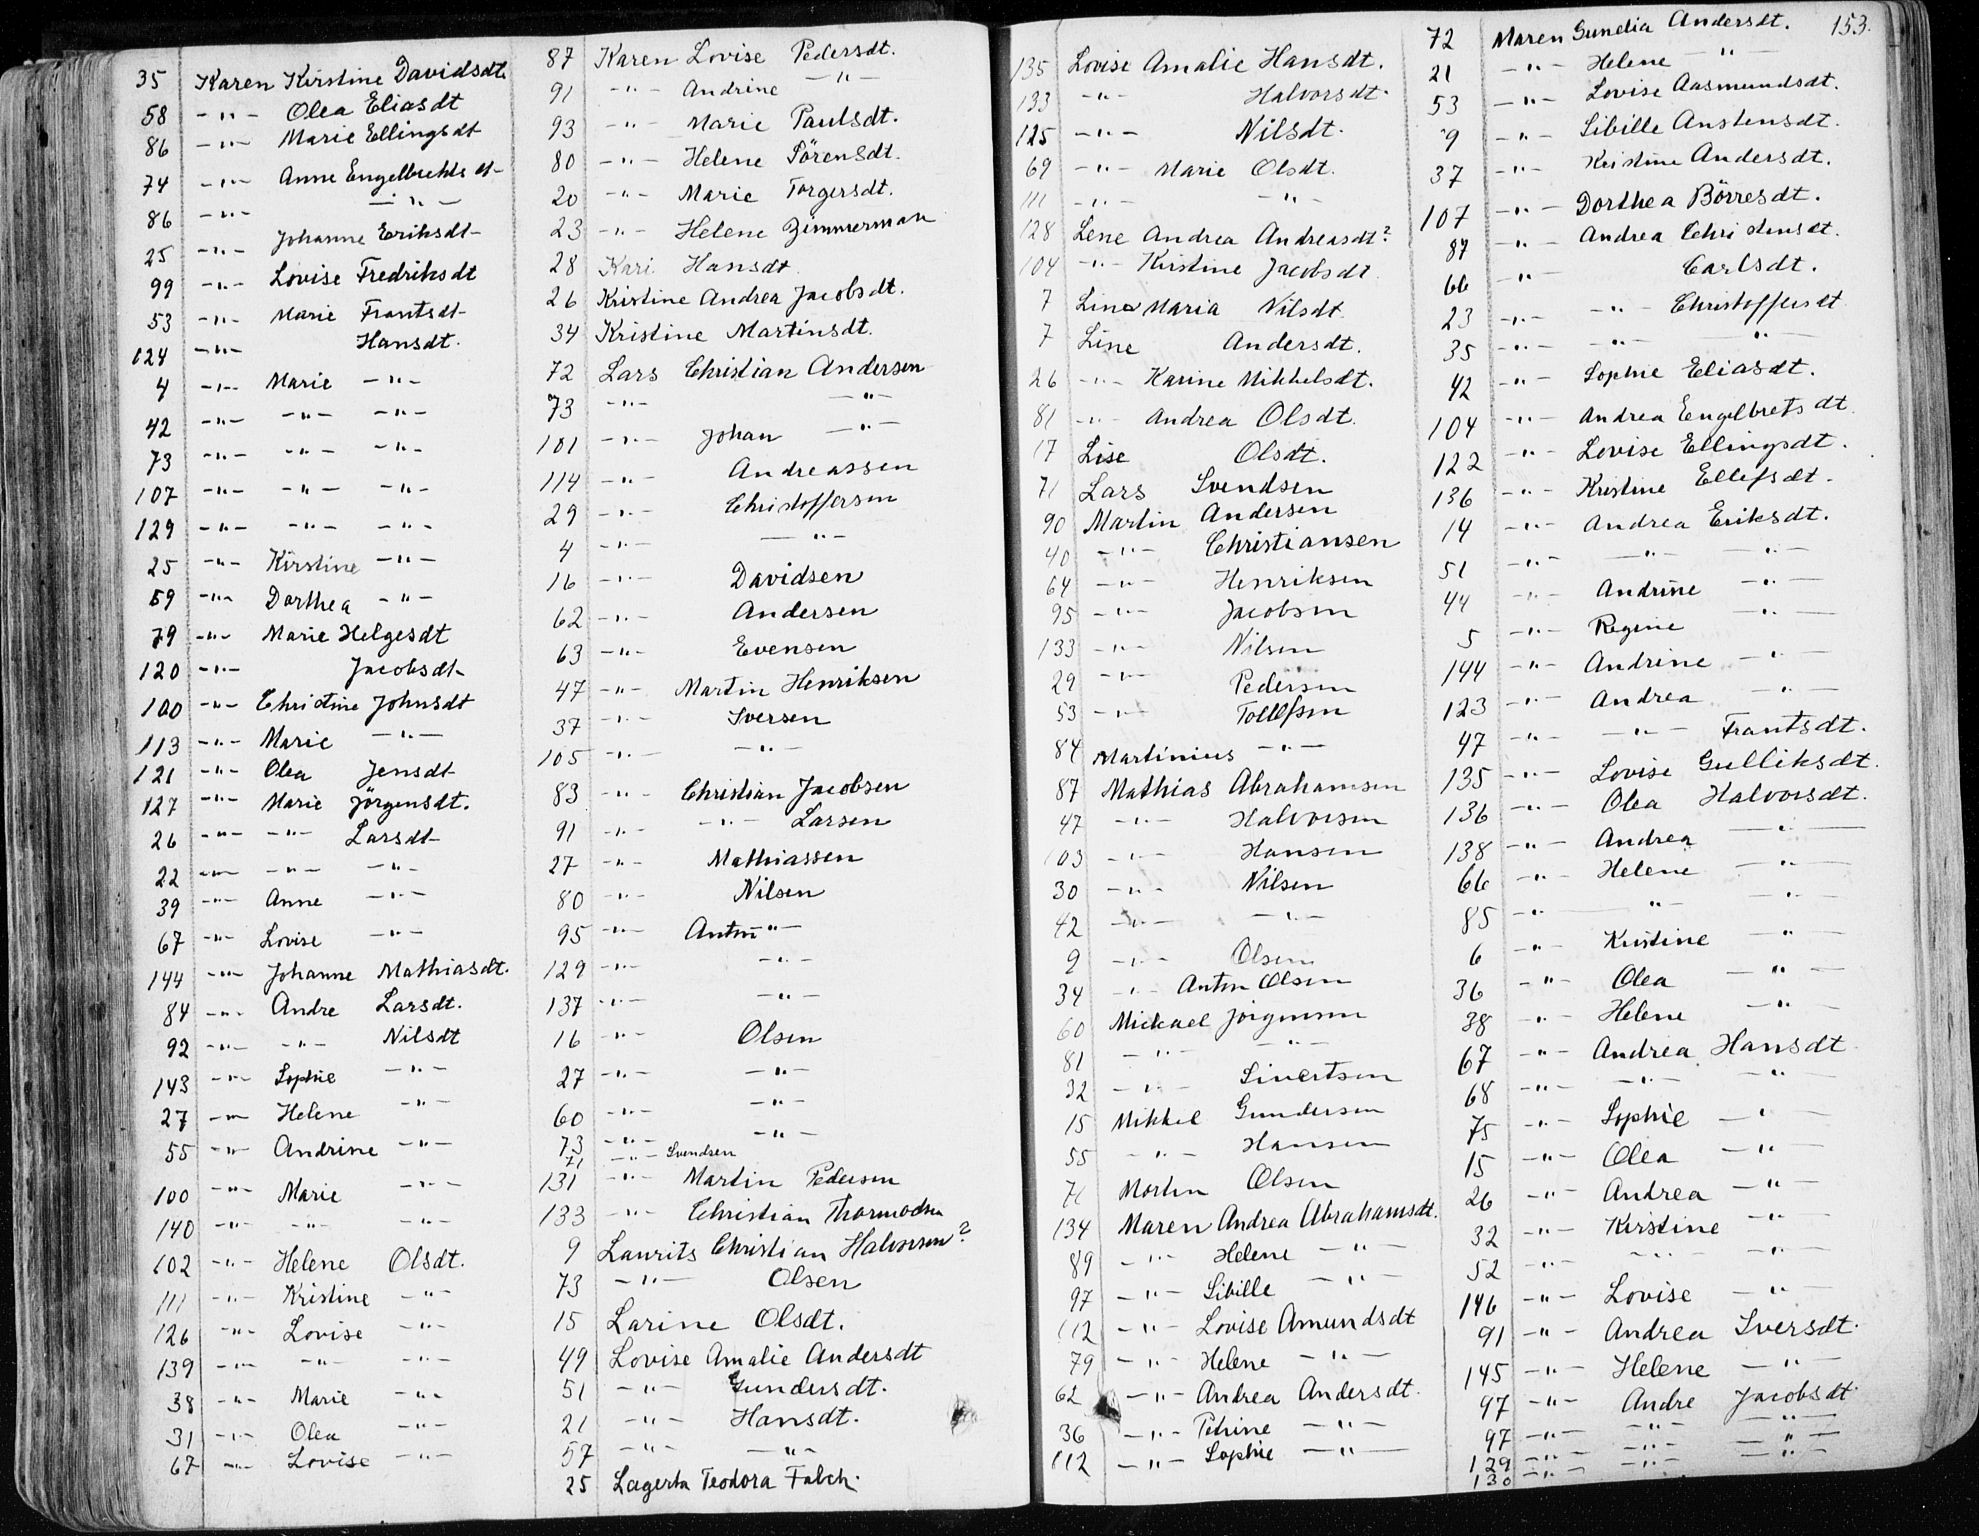 35 Karen Kirstine Davidsdt.
58 -"- Olea Eliasdt
86 -"- Marie Ellingsdt
74 -"- Anne Engelbrektsdt-
86 -"- -"-
25 -"- Johanne Eriksdt-
99 -"- Lovise Fredriksdt
53 -"- Marie Frantsdt-
124 -"- Hansdt.
4 -"- Marie -"-
42 -"- -"- -"-
73 -"- -"- -"-
107 -"- -"- -"-
129 -"- -"- -"-
25 -"- Kirstine -"-
59 -"- Dorthea -"-
79 -"- Marie Helgesdt
120 -"- Jacobsdt-
100 -"- Christine Johnsdt
113 -"- Marie -"-
121 -"- Olea Jensdt-
127 -"- Marie Jörgensdt.
26 -"- -"- Larsdt-
22 -"- -"- -"-
39 -"- Anne -"-
67 -"- Lovise -"-
144 -"- Johanne Mathiasdt.
84 -"- Andre Larsdt.
92 -"- -"- Nilsdt
143 -"- Sophie -"-
27 -"- Helene -"-
55 -"- Andrine -"-
100 -"- Marie -"-
140 -"- -"- -"-
102 -"- Helene Olsdt.
111 -"- Kristine -"-
126 -"- Lovise -"-
139 -"- -"- -"-
38 -"- Marie -"-
31 -"- Olea -"-
67 -"- Lovise -"-
87 Karen Lovise Pedersdt.
91 -"- Andrine -"-
93 -"- Marie Paulsdt.
80 -"- Helene Sörensdt.
20 -"- Marie Torgersdt.
23 -"- Helene Zimmerman
28 Kari Hansdt
26 Kristine Andrea Jacobsdt.
34 Kristine Martinsdt.
72 Lars Christian Andersen
73 -"- -"-
101 -"- Johan -"-
114 -"- Andreassen
29 -"- Christoffersen
4 -"- -"-
16 -"- Davidsen
62 -"- Andersen
63 -"- Evensen
47 -"- Martin Henriksen
37 -"- Iversen
105 -"- -"-
83 -"- Christian Jacobsen
91 -"- -"- Larsen
27 -"- Mathiassen
80 -"- Nilsen
95 -"- Anton -"-
129 -"- -"-
137 -"- -"-
16 -"- Olsen
27 -"- -"-
60 -"- -"-
73 -"- -"-
71 -"- Svendsen
131 -"- Martin Pedersen
133 -"- Christian Thormodsen
9 Laurits Christian Halvorsen?
73 -"- Olsen
15 Larine Olsdt.
49 Lovise Amalie Andersdt
51 -"- Gundersdt.
21 -"- Hansdt.
57 -"- -"-
25 Lagerta Teodora Falch.
135 Lovise Amalie Hansdt.
133 -"- Halvorsdt.
125 -"- Nilsdt.
69 -"- Marie Olsdt.
111 -"- -"-
128 Lene Andrea Andreasdt?
104 -"- Kirstine Jacobsdt
7 Line Maria Nilsdt
7 Line Andersdt.
26 -"- Karine Mikkelsdt.
81 -"- Andrea Olsdt.
17 Lise Olsdt.
71 Lars Svendsen
90 Martin Andersen
40 -"- Christiansen
64 -"- Henriksen
95 -"- Jacobsen
133 -"- Nilsen
29 -"- Pedersen
53 -"- Tollefsen
84 Martinius -"-
87 Mathias Abrahamsen
47 -"- Halvorsen
103 -"- Hansen
30 -"- Nilsen
42 -"- -"-
9 -"- Olsen
34 -"- Anton Olsen
60 Mickael Jörgensen
81 -"- -"-
32 -"- Sivertsen
15 Mikkel Gundersen
55 -"- Hansen
71 Morten Olsen
134 Maren Andrea Abrahamsdt.
89 -"- Helene -"-
97 -"- Sibille -"-
112 -"- Lovise Amundsdt
79 -"- Helene -"-
62 -"- Andrea Andersdt.
36 -"- Petrine -"-
112 -"- Sophie -"-
153.
72 Maren Gunelia Andersdt.
21 -"- Helene -"-
53 -"- Lovise Aasmundsdt.
9 -"- Sibille Anstensdt.
37 -"- Kristine Andersdt.
107 -"- Dorthea Börresdt.
87 -"- Andrea Christensdt.
66 -"- Carlsdt.
23 -"- -"- Christoffersdt
35 -"- -"- -"-
42 -"- Sophie Eliasdt.
104 -"- Andrea Engelbretsdt.
122 -"- Lovise Ellingsdt.
136 -"- Kristine Ellefsdt.
14 -"- Andrea Eriksdt.
51 -"- -"- -"-
44 -"- Andrine -"-
5 -"- Regine -"-
144 -"- Andrine -"-
123 -"- Andrea -"-
47 -"- -"- Frantsdt.
135 -"- Lovise Gulliksdt.
136 -"- Olea Halvorsdt.
138 -"- Andrea -"-
66 -"- Helene -"-
85 -"- -"- -"-
6 -"- Kristine -"-
36 -"- Olea -"-
38 -"- Helene -"-
67 -"- Andrea Hansdt
68 -"- -"- -"-
75 -"- Sophie -"-
15 -"- Olea -"-
26 -"- Andrea -"-
32 -"- Kirstine -"-
52 -"- -"- -"-
146 -"- Lovise -"-
91 -"- Andrea Iversdt.
145 -"- Helene -"-
97 -"- Andre Jacobsdt.
97 -"- -"- -"-
129 -"- -"- -"-
130 -"- -"- -"-